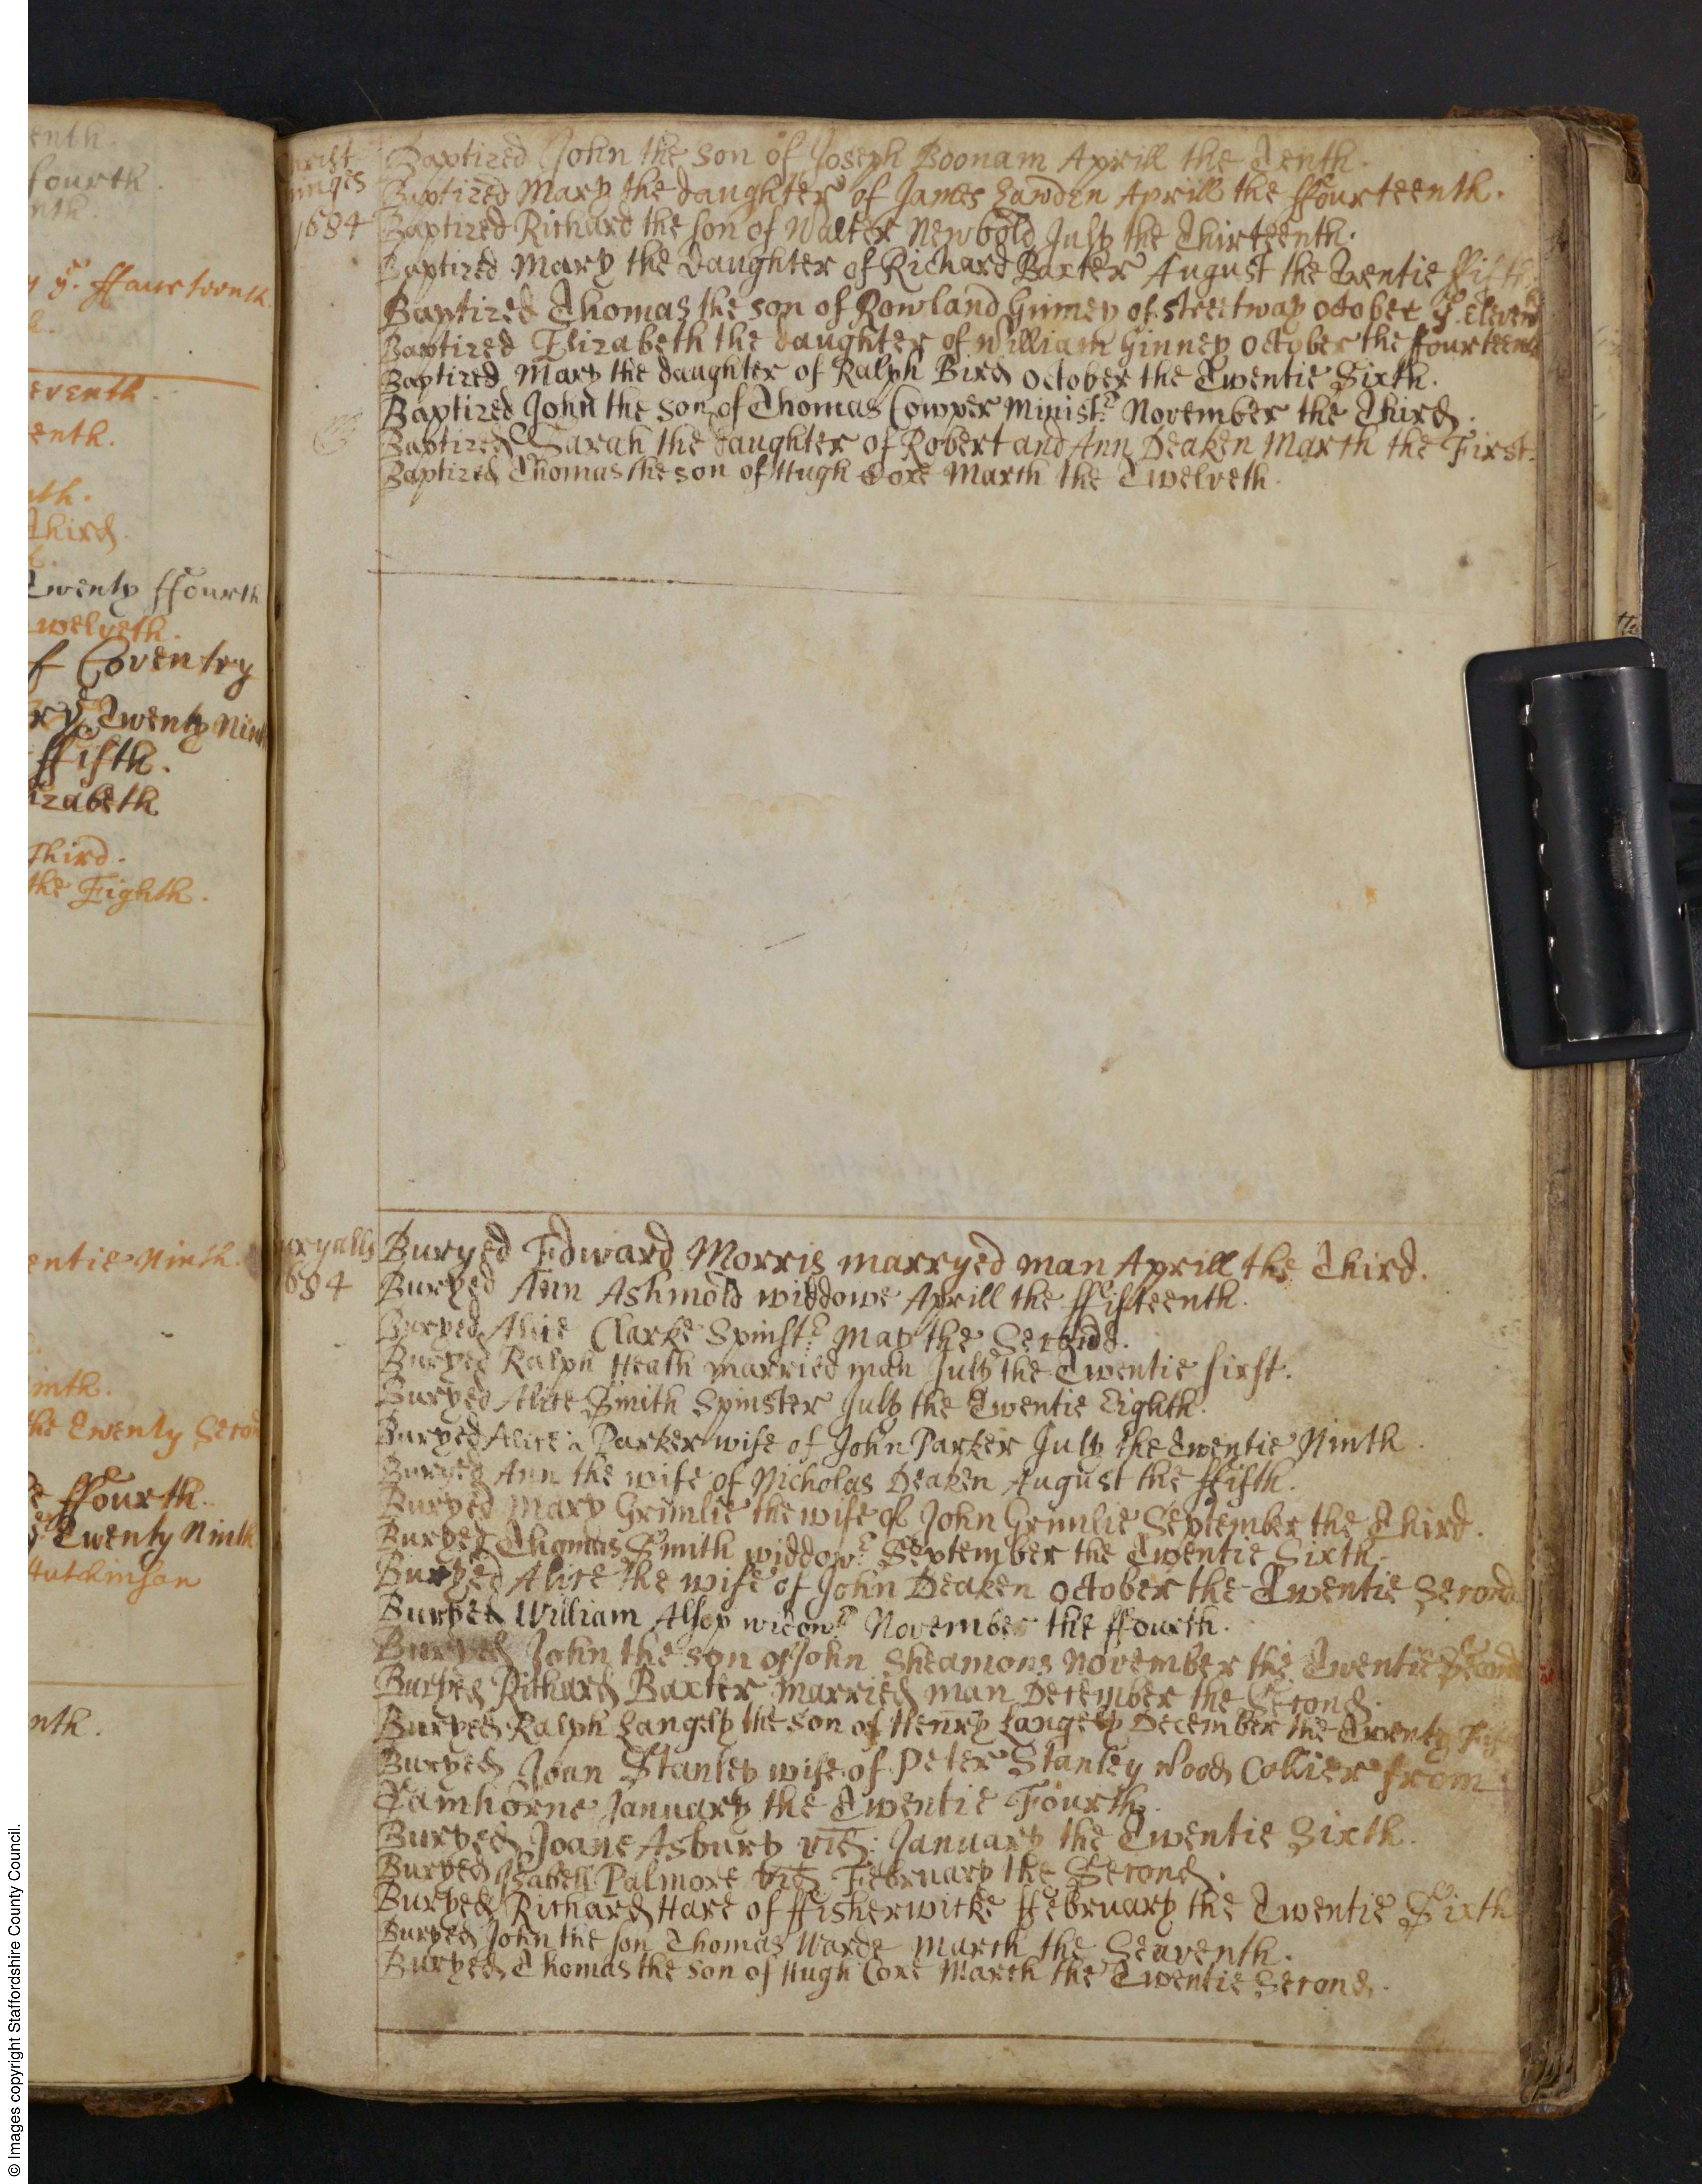 enth.
fourth.
nth.
y yͤ. ffourteenth
h.
eventh.
enth.
nth.
Third.
Twenty ffourth
welveth.
f Coventry
ry yͤ Twenty Ninth
ffifth.
izabeth
Third.
the Eighth.
entie Ninth.
inth.
the Twenty Secon
e ffourth.
yͤ Twenty Ninth
Hutchinson
nth.
hrist
inges
1684
Baptized John the son of Joseph Boonam Aprill the Tenth.
Baptized Mary the daughter of James Lawden Aprill the ffourteenth.
Baptized Richard the son of Walter Newbold July the Thirteenth.
Baptized Mary the Daughter of Richard Baxter August the Twentie ffifth
Baptized Thomas the son of Rowland Ginney of Streetway October yͤ. Eleven
Baptized Elizabeth the daughter of William Ginney October the ffourteenth
Baptized Mary the daughter of Ralph Bird October the Twentie Sixth.
Baptized John the son of Thomas Cowper Ministʳ November the Third.
Baptized Sarah the daughter of Robert and Ann Deaken March the First.
Baptized Thomas the son of Hugh Core March the Twelveth.
uryalls
684
Buryed Edward Morris marryed man Aprill the Third.
Buryed Ann Ashmold widdowe Aprill the ffifteenth.
Buryed Alice Clarke Spinstʳ May the Second.
Buryed Ralph Heath married man July the Twentie first.
Buryed Alice Smith Spinster July the Twentie Eighth.
Buryed Alice Parker wife of John Parker July the Twentie Ninth.
Buryed Ann the wife of Nicholas Deaken August the ffifth.
Buryed Mary Grimlie the wife of John Grimlie September the Third.
Buryed Thomas Smith widdowʳ September the Twentie Sixth.
Buryed Alice the wife of John Deaken October the Twentie Second
Buryed William Alsop widowʳ November the ffourth.
Buryed John the son of John Sheamons November the Twentie Second
Buryed Richard Baxter married man December the Second.
Buryed Ralph Langely the son of Henry Langely December the Twenty
Buryed Joan Stanley wife of Peter Stanley Wood Collier from
Tamhorne January the Twentie Fourth.
Buryed Joane Asbury vid: January the Twentie Sixth.
Buryed Isabell Palmore vid February the Second.
Buryed Richard Hare of ffisherwicke ffebruary the Twentie Sixth
Buryed John the son Thomas Warde March the Seaventh.
Buryed Thomas the son of Hugh Core March the Twentie Second.
© Images copyright Staffordshire County Council.